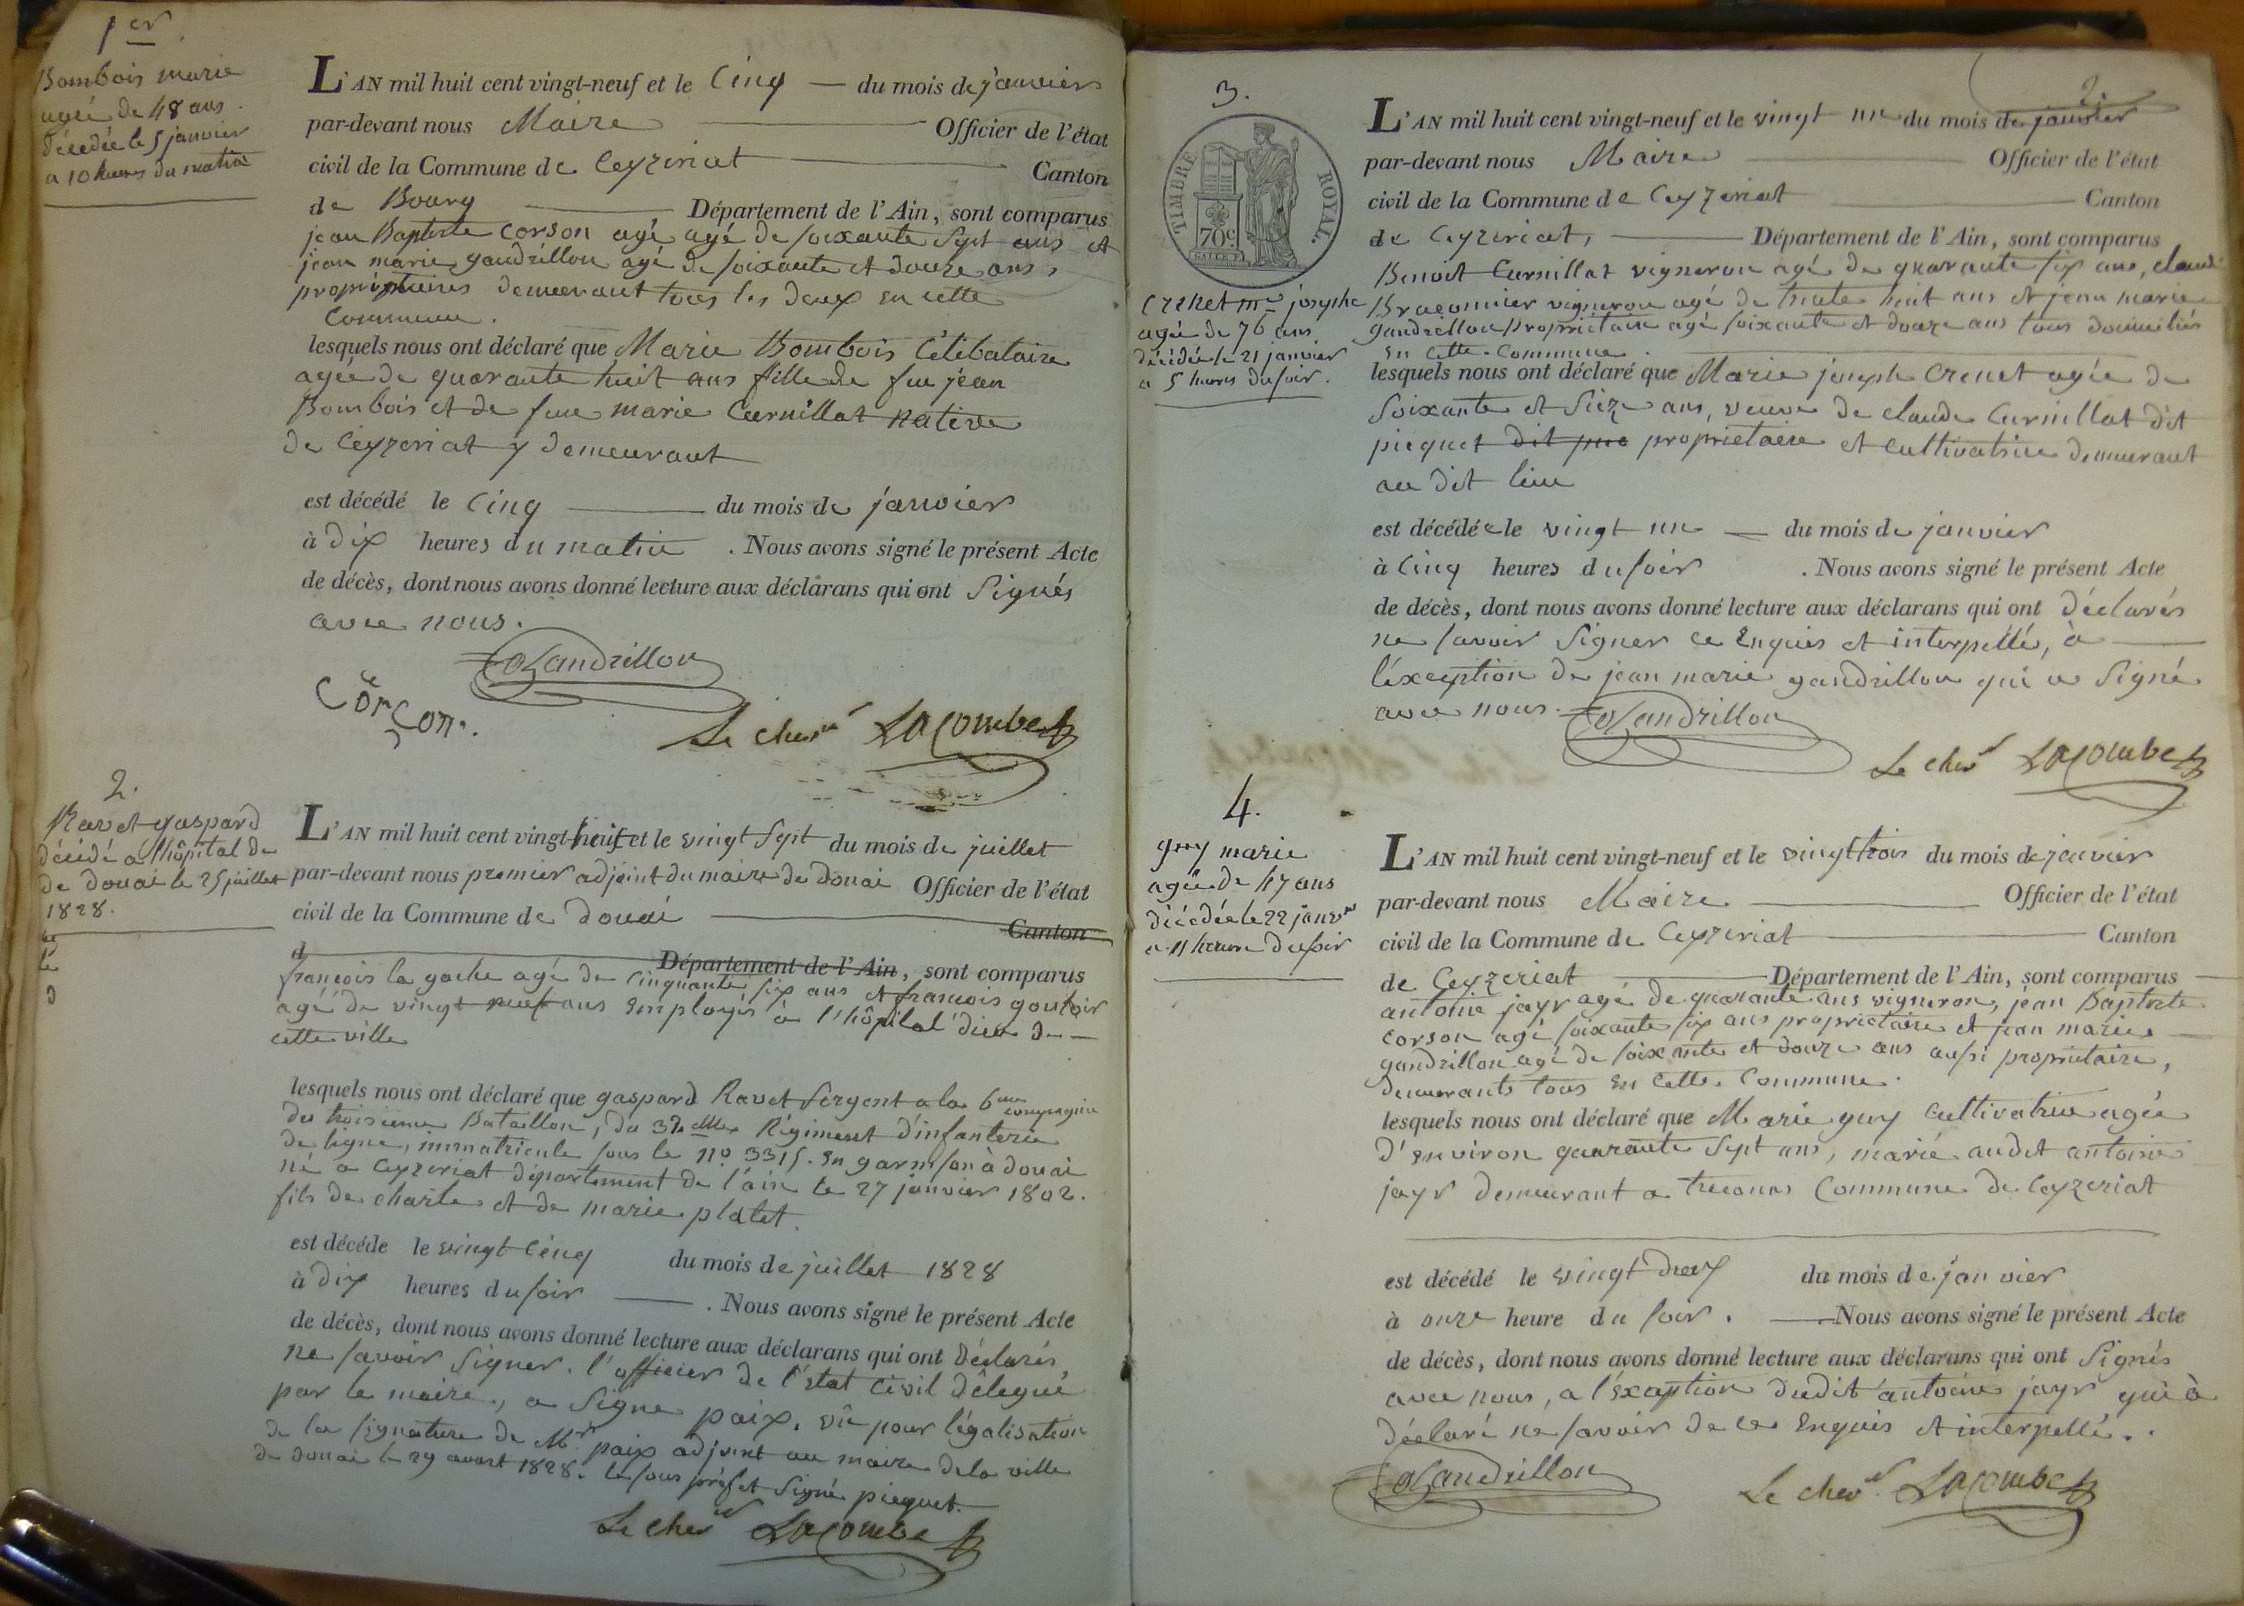 1er
Bombois marie
agée de 48 ans.
décédée le 5 janvier
a 10 heures du matin
L'AN mil huit cent vingt-neuf et le Cinq du mois de janvier
par-devant nous Maire Officier de l'état
civil de la Commune de Ceyzeriat Canton
de Bourg Département de l'Ain, sont comparus
jean Baptiste Corson agé agé de soixante Sept ans et
jean marie gandrillon agé de soixante et douze ans,
propriétaires demeurant tous les deux en cette
Commune.
lesquels nous ont déclaré que Marie Bombois Célibataire
agée de quarante huit ans fille de feu jean
Bombois et de feue marie Curnillat native
de Ceyzeriat y demeurant
est décédé le Cinq du mois de janvier
à dix heures du matin . Nous avons signé le présent Acte
de décès, dont nous avons donné lecture aux déclarans qui ont Signés
avec nous.
Gandrillon
Corçon.
Le cher Lacombe
2.
Ravet gaspard
décédé a l'hôpital de
de douai le 25 juillet
1828.
L'AN mil huit cent vingt-huit et le vingt Sept du mois de juillet
par-devant nous premier adjoint du maire de Douai Officier de l'état
civil de la Commune de douai Canton
d Département de l'Ain, sont comparus
françois la gache agé de Cinquante six ans et francois goutoir
agé de vingt neuf ans Employés à l'hôpital dieu de
cette ville
lesquels nous ont déclaré que gaspard Ravet Sergent a la 6me compagnie
du troisieme Bataillon, du Régiment d'infanterie
de ligne, immatricule sous le no 3315. En garnison à douai
né a Ceyzeriat département de l'ain le 27 janvier 1802.
fils de charle et de marie platet.
est décédé le vingt Cinq du mois de juillet 1828
à dix heures du soir . Nous avons signé le présent Acte
de décès, dont nous avons donné lecture aux déclarans qui ont déclarés
ne savoir Signer. l'officier de l'état Civil délegué
par le maire, a Signe paix. vû pour légalisation
de la Signature de Mr paix adjoint au maire de la ville
de douai le 29 aoust 1828. le sous préfet Signé piequet.
Le cher Lacombe
2.
3.
TIMBRE ROYAL.
70c
Crenet mie josephe
agée de 76 ans
décédée le 21 janvier
a 5 heures du soir.
L'AN mil huit cent vingt-neuf et le vingt un du mois de janvier
par-devant nous Maire Officier de l'état
civil de la Commune de Ceyzeriat Canton
de Ceyzeriat, Département de l'Ain, sont comparus
Benoit Curnillat vigneron agé de quarante six ans, claude
Braconnier vigneron agé de trente huit ans et jean marie
gandrillon propriétaire agé soixante et douze ans tous domiciliés
En Cette Commune.
lesquels nous ont déclaré que Marie joseph Crenet agée de
Soixante et Sieze ans, veuve de claude Curnillat dit
piequet dit pro propriétaire et Cultivatrice demeurant
au dit lieu
est décédée le vingt un du mois de janvier
à Cinq heures du soir . Nous avons signé le présent Acte
de décès, dont nous avons donné lecture aux déclarans qui ont déclarés
ne savoir Signer ce Enquis et interpellé, à
l'éxception de jean marie gandrillon qui a Signé
avec nous.
Gandrillon
Le cher Lacombe
4.
guy marie
agée de 47 ans
décédée le 22 janvier
a 11 heure du soir
L'AN mil huit cent vingt-neuf et le vingt trois du mois de janvier
par-devant nous Maire Officier de l'état
civil de la Commune de Ceyzeriat Canton
de Ceyzeriat Département de l'Ain, sont comparus
antoine jayr agé de quarante ans vigneron, jean Baptiste
Corson agé soixante six ans propriétaire et jean marie
gandrillon agé de soixante et douze ans aussi propriétaire,
demeurants tous En Cette Commune.
lesquels nous ont déclaré que Marie guy Cultivatrice agée
d'Environ quarante Sept ans, marié audit antoine
jayr demeurant a treconas Commune de Ceyzeriat
est décédé le vingt deux du mois de janvier
à onze heure du soir. Nous avons signé le présent Acte
de décès, dont nous avons donné lecture aux déclarans qui ont Signés
avec nous, a l'éxception dudit antoine jayr qui à
déclaré ne savoir de ce Enquis et interpellé.
Gandrillon
Le cher Lacombe